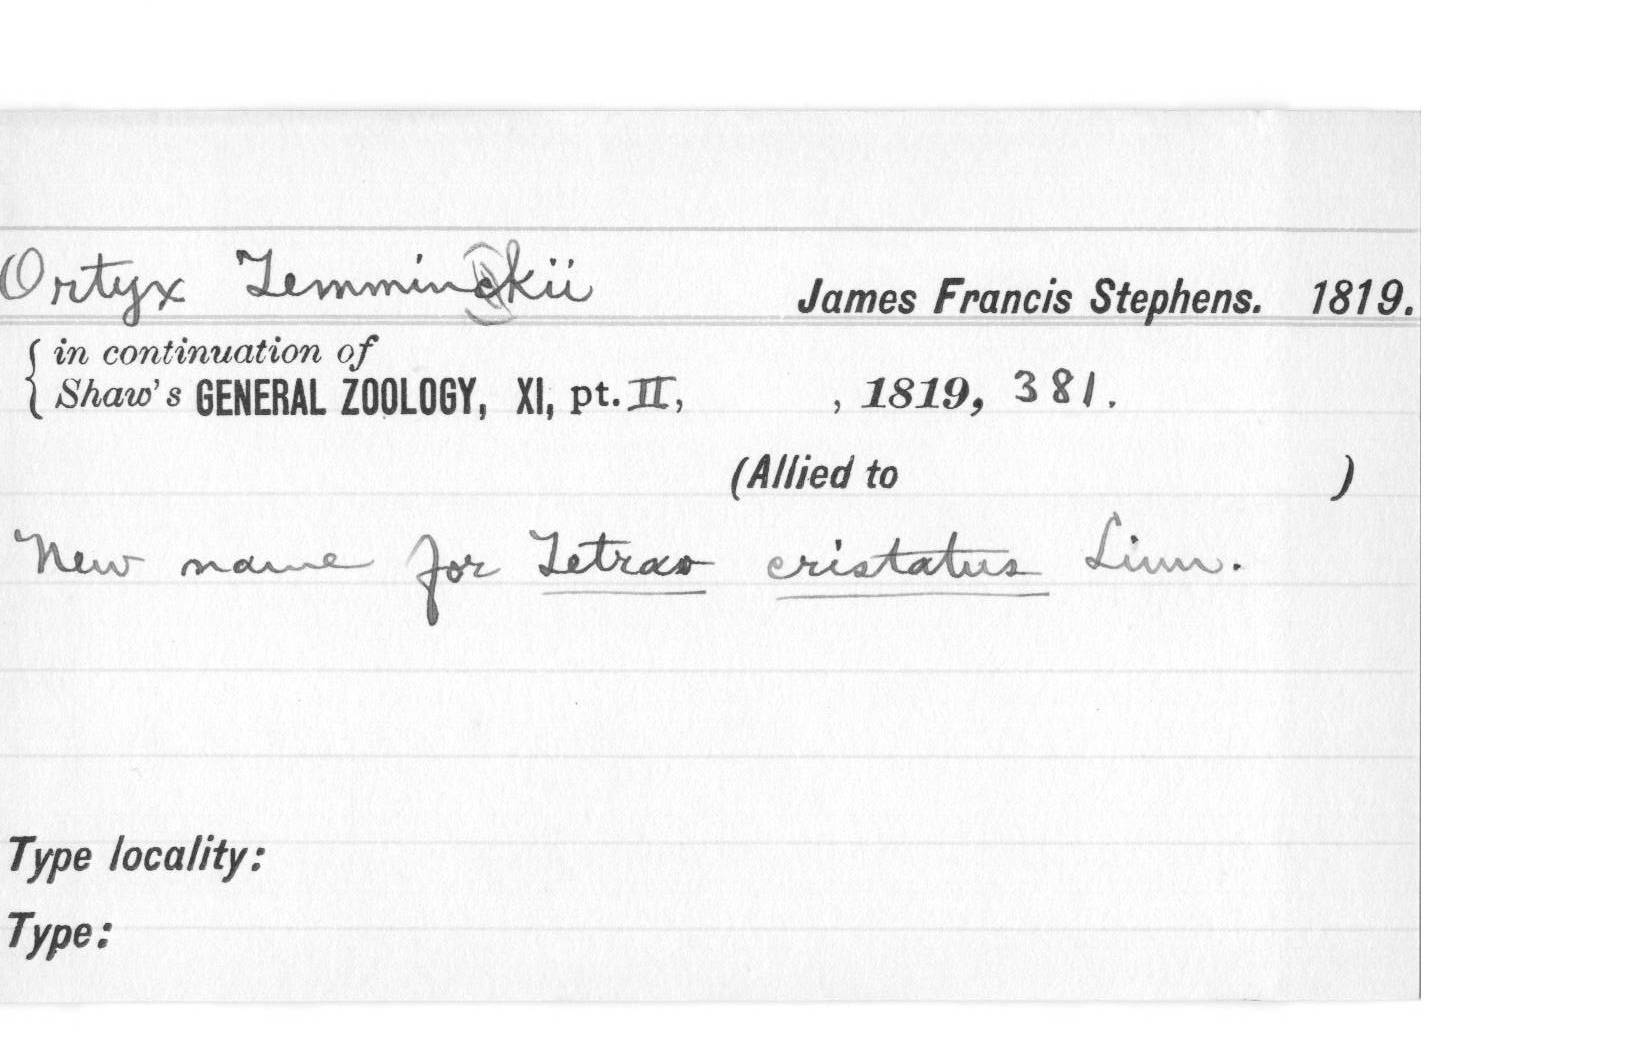 Ortyx Temminckii James Francis Stephens. 1819.
in continuation of
Shaw's GENERAL ZOOLOGY, XI, pt. II, , 1819, 381.
(Allied to )
New name for Tetrao cristatus Linn.
Type locality:
Type: